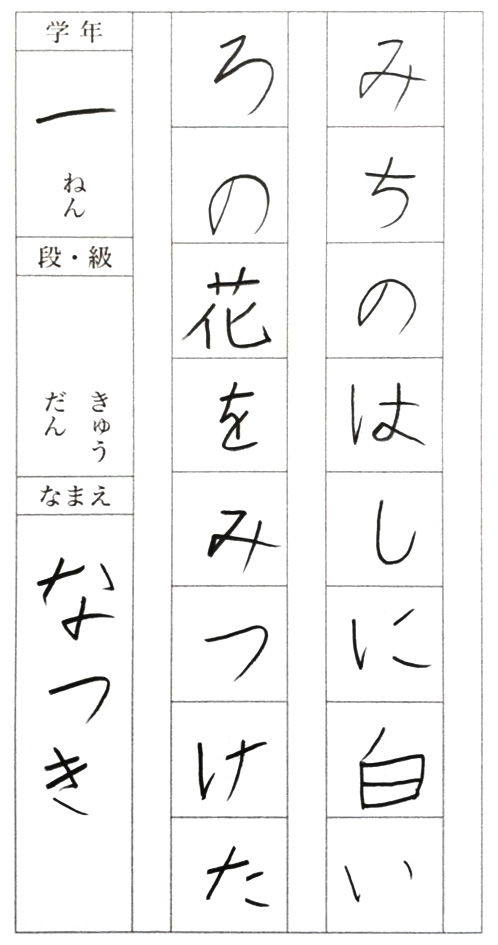 みちのはしに白い
ろの花をみつけた
学年
一ねん
段・級
きゅう
だん
なまえ
なつき